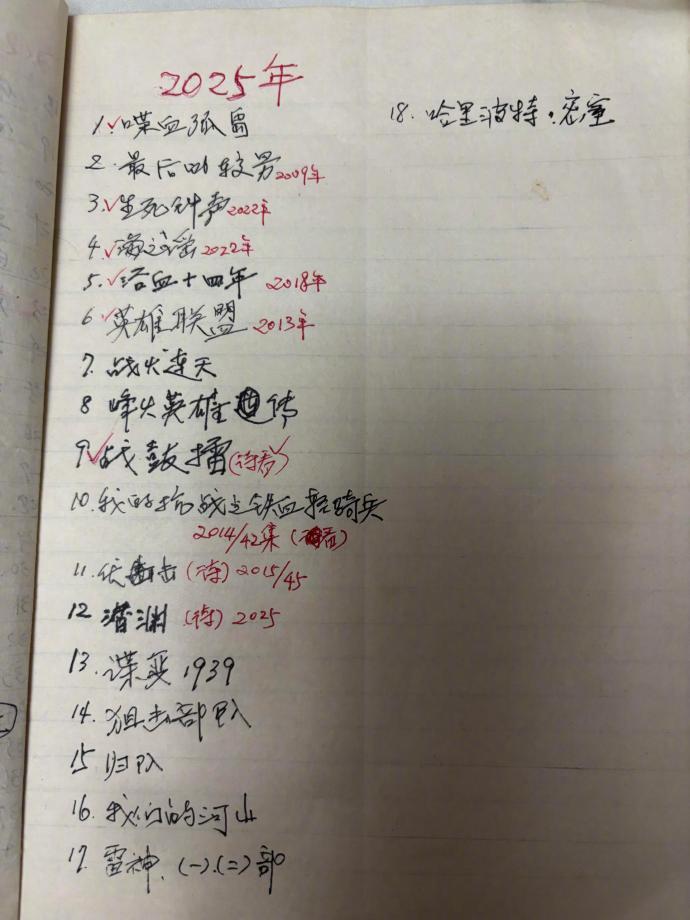 2025年
1.✓喋血孤岛
2.最后的较男2009年
3.✓生死钟声2022年
4.✓海之谣2022年
5.✓浴血十四年 2018年
6.✓英雄联盟2013年
7.战火连天
8 烽火英雄传
9✓战鼓擂(待看)✓
10.我的抗战之铁血轻骑兵
2014/42集(待看)
11.伏击(待)2015/45
12 潜渊(待)2025
13.谍变1939
14.狙击部队
15 归队
16.我们的河山
17.雷神.(一).(二)部
18.哈里波特·密室